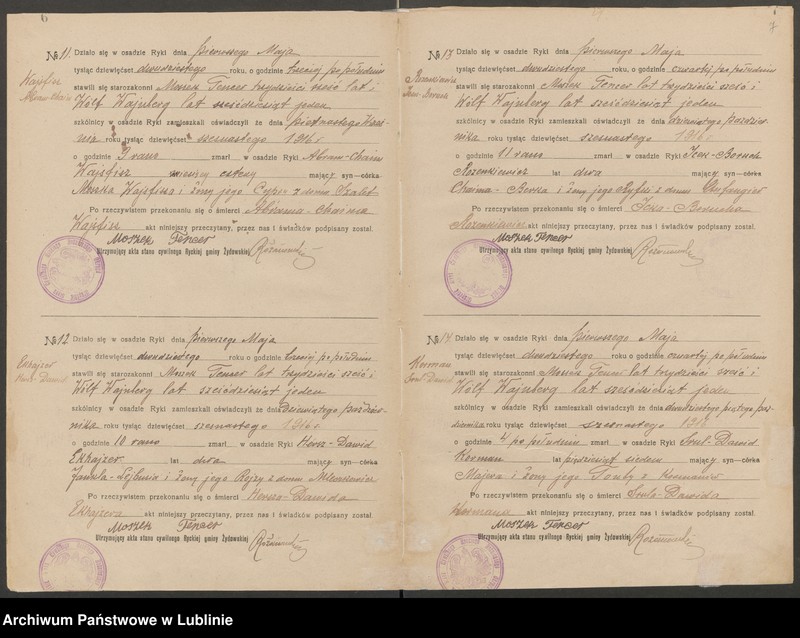 6
№ 11. Działo się w osadzie Ryki dnia pierwszego Maja
tysiąc dziewięćset dwudziestego roku, o godzinie trzeciej po południu
Wajsfisz
Abram-Chaim
stawili się starozakonni Moszek Fencer lat trzydzieści sześć i
Wólf Wajnberg lat sześćdziesiąt jeden
szkólnicy w osadzie Ryki zamieszkali oświadczyli że dnia piętnastego Wrześ-
nia roku tysiąc dziewięćset szesnastego 1916 r
o godzinie 9 rano zmarł w osadzie Ryki Abram-Chaim
Wajsfisz miesięcy cztery mający syn—córka
Moszka Wajsfisza i żony jego Cypi z domu Szalet
Po rzeczywistem przekonaniu się o śmierci Abrama-Chaima
Wajsfisz akt niniejszy przeczytany, przez nas i świadków podpisany został.
Moszek Fencer
Utrzymujący akta stanu cywilnego Ryckiej gminy Żydowskiej
№ 12 Działo się w osadzie Ryki dnia pierwszego Maja
tysiąc dziewięćset dwudziestego roku o godzinie trzeciej po południu
Ekhajzer
Hersz-Dawid
stawili się starozakonni Moszek Fencer lat trzydzieści sześć i
Wólf Wajnberg lat sześćdziesiąt jeden
szkólnicy w osadzie Ryki zamieszkali oświadczyli że dnia Dziewiątego paździer-
nika roku tysiąc dziewięćset szesnastego 1916 r
o godzinie 10 rano zmarł w osadzie Ryki Hersz-Dawid
Ekhajzer lat dwa mający syn—córka
Jankla-Lejbusia i żony jego Rojzy z domu
Po rzeczywistem przekonaniu się o śmierci Hersza-Dawida
Ekhajzera akt niniejszy przeczytany, przez nas i świadków podpisany został.
Moszek Fencer
Utrzymujący akta stanu cywilnego Ryckiej gminy Żydowskiej
7
№ 13 Działo się w osadzie Ryki dnia pierwszego Maja
tysiąc dziewięćset dwudziestego roku, o godzinie czwartej po południu
Rozenkiewicz
Icek-Boruch
stawili się starozakonni Moszek Fencer lat trzydzieści sześć i
Wólf Wajnberg lat sześćdziesiąt jeden
szkólnicy w osadzie Ryki zamieszkali oświadczyli że dnia dziewiątego paździer-
nika roku tysiąc dziewięćset szesnastego 1916 r
o godzinie 11 rano zmarł w osadzie Ryki Icek-Boruch
Rozenkiewicz lat dwa mający syn—córka
Chaima-Berka i żony jego Ryfki z domu
Po rzeczywistem przekonaniu się o śmierci Icka-Borucha
Rozenkiewicz akt niniejszy przeczytany, przez nas i świadków podpisany został.
Moszek Fencer
Utrzymujący akta stanu cywilnego Ryckiej gminy Żydowskiej
№ 14 Działo się w osadzie Ryki dnia pierwszego Maja
tysiąc dziewięćset dwudziestego roku o godzinie czwartej po południu
Korman
Srul-Dawid
stawili się starozakonni Moszek Fencer lat trzydzieści sześć i
Wólf Wajnberg lat sześćdziesiąt jeden
szkólnicy w osadzie Ryki zamieszkali oświadczyli że dnia dwudziestego piątego paź-
dziernika roku tysiąc dziewięćset szesnastego 1916
o godzinie 4 po południu zmarł w osadzie Ryki Srul-Dawid
Korman lat pięćdziesiąt siedem mający syn—córka
Majera i żony jego Tauby z Kormanów
Po rzeczywistem przekonaniu się o śmierci Srula-Dawida
Kormana akt niniejszy przeczytany, przez nas i świadków podpisany został.
Moszek Fencer
Utrzymujący akta stanu cywilnego Ryckiej gminy Żydowskiej
Archiwum Państwowe w Lublinie